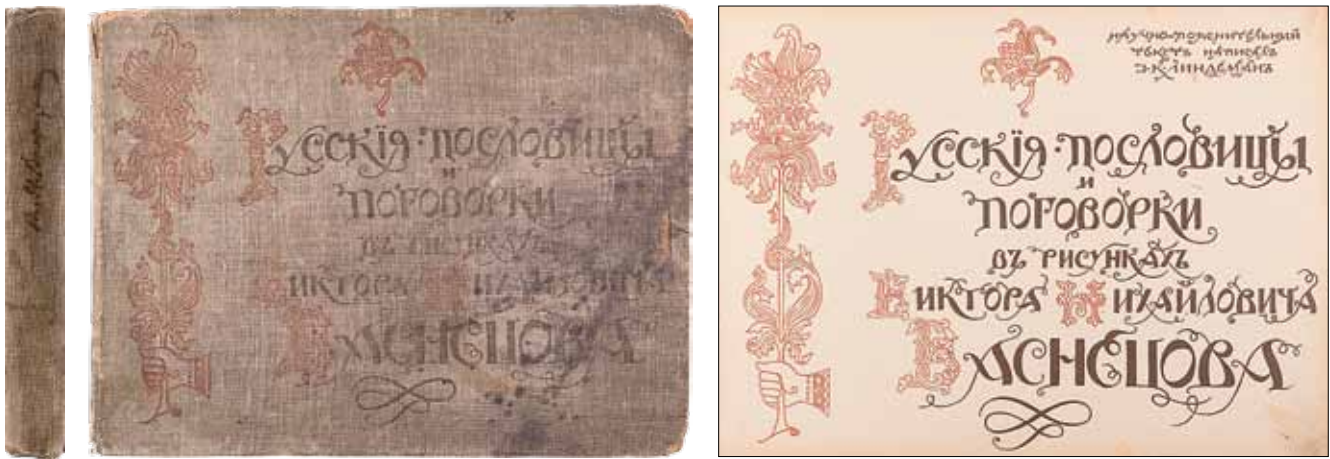 Русскія пословицы
и
поговорки
въ рисункахъ
Виктора Михайловича
Васнецова
научно-пояснительный
текстъ написалъ
Э.К. Линдеманъ
Русскія пословицы
и
поговорки
въ рисункахъ
Виктора Михайловича
Васнецова